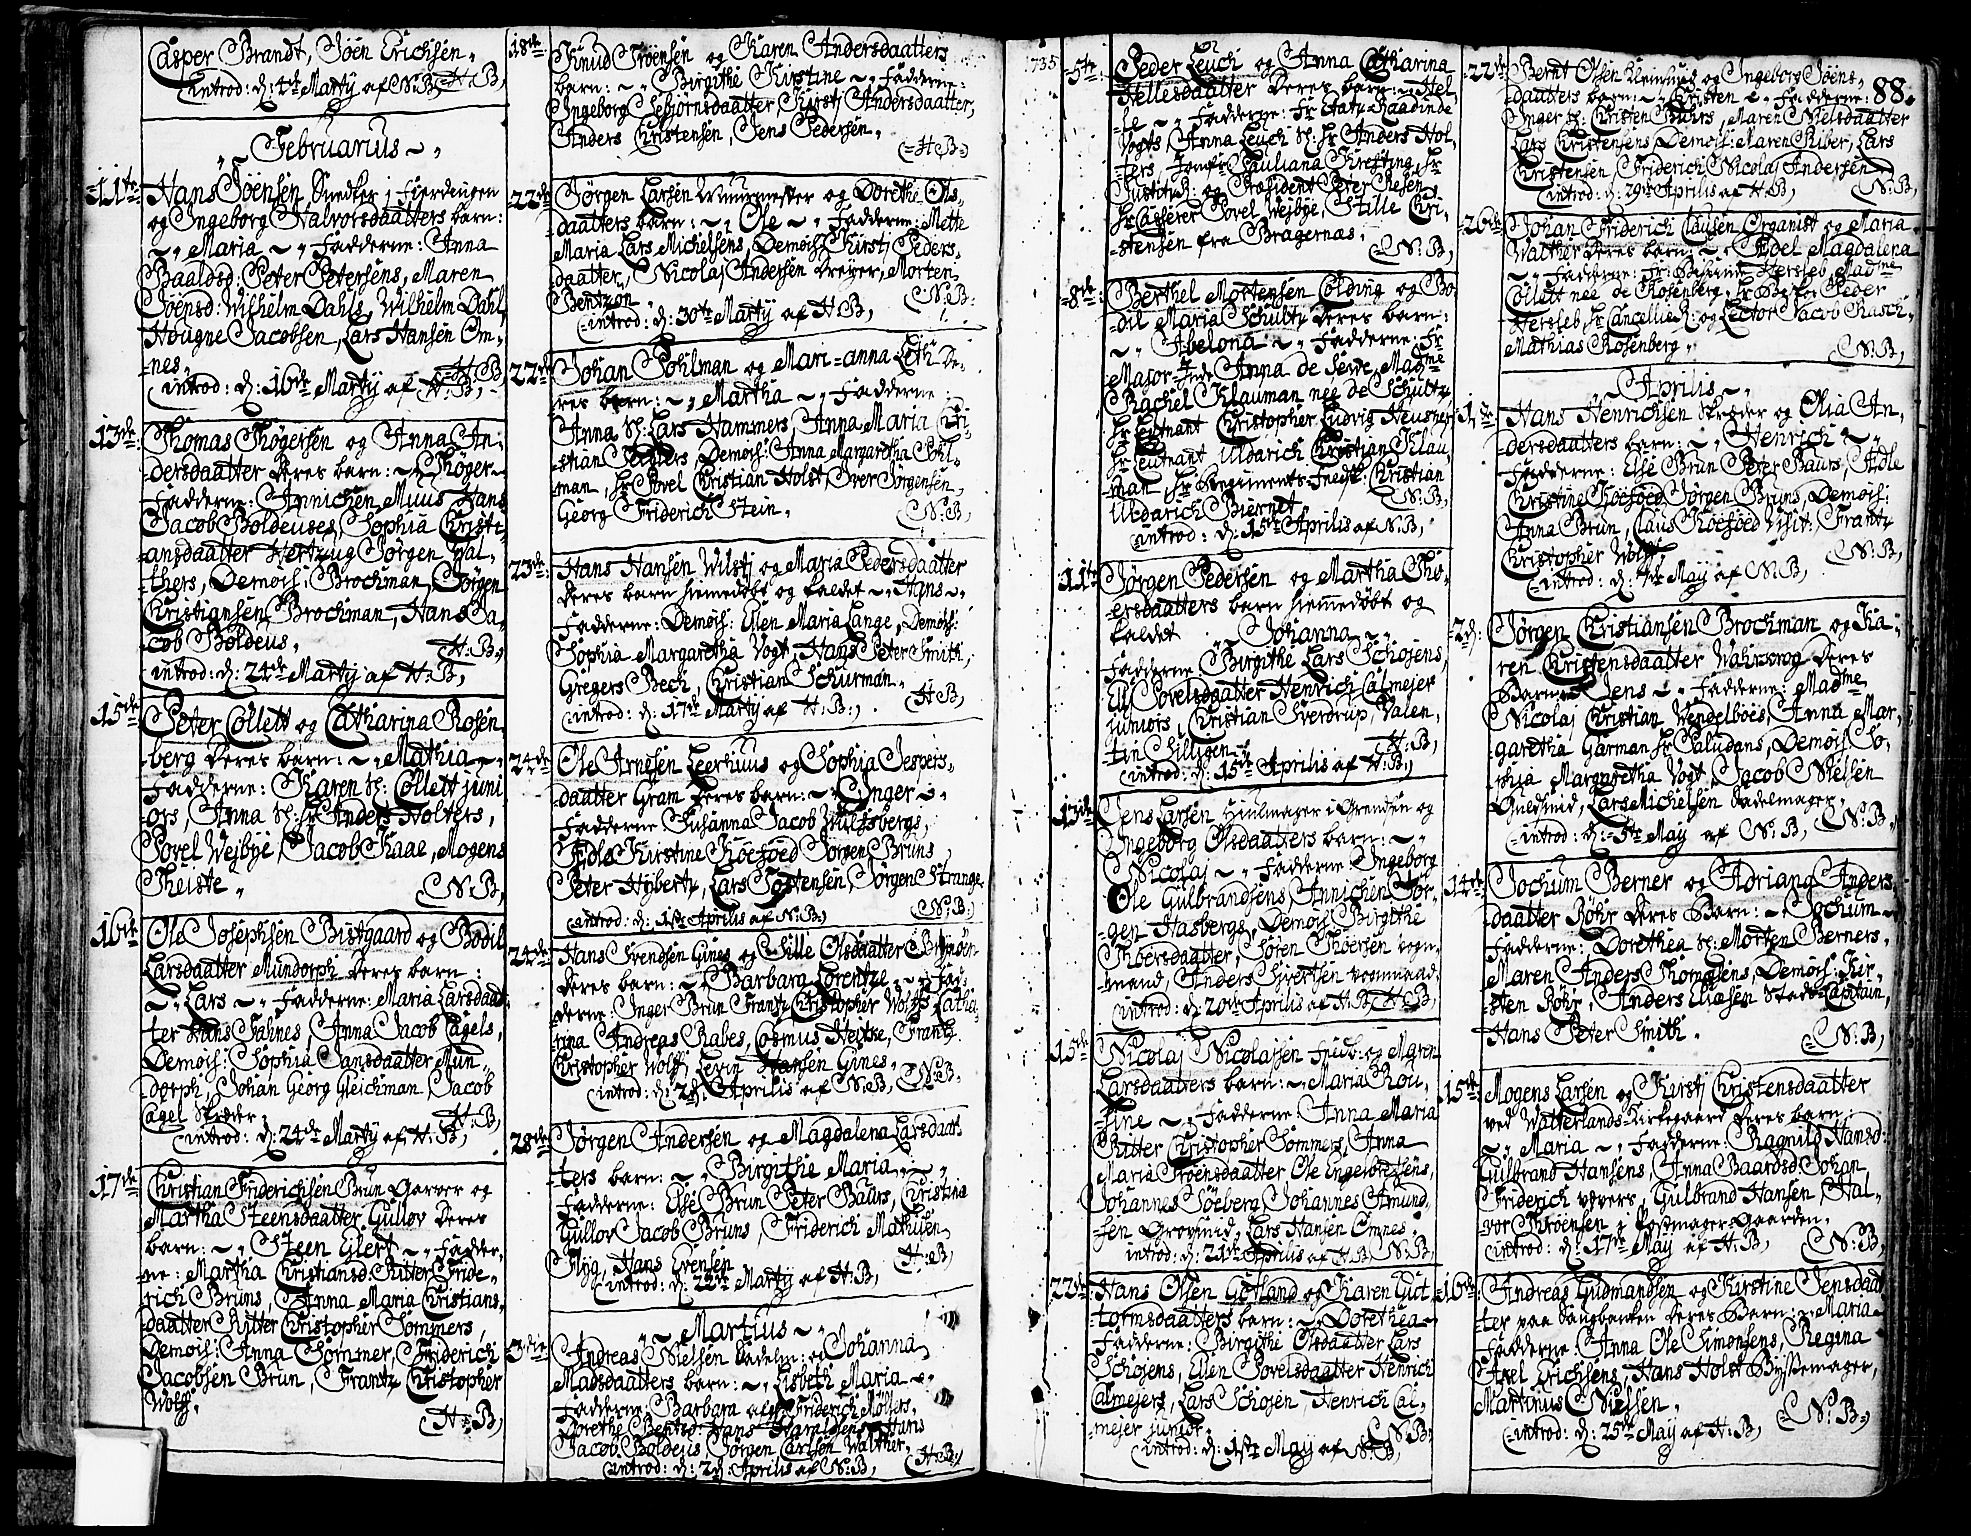 Casper Brandt, Jöen Erichsen
introd: d: 4de Martij af N:B. H:B,
Februarius
11te Hans Jöensen Smedker i Fierdingen
og Ingeborg Halvorsdaatters barn:
Maria Fadderne: Anna
Baaldsd: Peter Petersens, Maren
Jöensd: Wilhelm Dahls, Wilhelm Dahl,
Hougne Jacobsen, Lars Hansen Om-
nes, H:B,
introd: d: 16de Martij af H:B,
13de Thomas Thögersen og Anna An-
dersdaatter deres barn: Thöger
Fadderne: Annichen Muus Hans
Jacob Boldeuses, Sophia Christi-
ansdaatter Hertzug Jörgen Wal-
thers, Demois: Brochman, Jörgen
Christiansen Brochman, Hans Ja-
cob Boldeus, H:B,
introd: d: 24de Martij af H:B,
15de Peter Collett og Catharina Rosen
berg deres barn: Mathia
Fadderne: Karen Sl: Collett juni
ors, Anna Sl: Hr Anders Holters,
Povel Wejbye, Jacob Kaae, Mogens
Theiste N:B,
16de Ole Josephsen Bistgaard og Bodil
Larsdaatter Mundorph deres barn:
Lars Fadderne: Maria Larsdaat
ter Hans Fahnes, Anna Jacob Cagels,
Demois: Sophia Jansdaatter Mun-
dorph, Johan Georg Gleichman, Jacob
Cagel Skreder H:B,
introd: d: 24de Martij af H:B,
17de Christian Friderichsen Brun Garver og
Martha Steensdaatter Gullov deres
barn: Steen Eilert Fadder-
ne: Martha Christiansd: Ritter Fride-
rich Bruns, Anna Maria Christians-
daatter Ritter Christopher Sommers,
Demois: Anna Sommer, Friderich
Jacobsen Brun, Frantz Christopher
Wolff. H:B,
18de Knud Tröensen og Karen Andersdaatters
barn: Birgithe Kirstine Fadderne:
Ingeborg Esbjornsdaatter, Kirstj Andersdaatter,
Anders Christensen, Jens Pedersen.
H:B:
22de Jörgen Larsen Muurmester og Dorethe Ols-
daatters barn: Ole Fadderne: Mette
Maria Lars Michelsens, Demois: Kirstj Peders-
daatter, Nicolaj Andersen Dreyer, Morten
Bentzon N:B:
introd: d: 30te Martij af H:B,
22de Johan Pohlman og Mari-anna Leth De-
res barn: Martha Fadderne:
Anna Sl: Lars Hammers, Anna Maria Cri-
stian Peders, Demois: Anna Margaretha Pohl-
man, Hr Povel Christian Holst, Iver Jörgensen,
Georg Friderich Stein. N:B,
23de Hans Hansen Wilstj og Maria Pedersdaatter
deres barn hiemedöbt og kaldet Hans
Fadderne: Demois: Ellen Maria Lange, Demois:
Sophia Margaretha Vogt, Hans Peter Smith,
Gregers Bech, Christian Schurman
introd: d: 17de Martij af H:B:, H:B,
24de Ole Arnesen Leerhuus og Sophia Jespers-
daatter Gram deres barn: Inger
Fadderne: Susanna Jacob Wulfsbergs,
Edle Kirstine Köeföed Jörgen Bruns,
Peter Hybertz, Lars Tostensen, Jörgen Strange
introd: d: 1ste Aprilis af N:B:, N:B:,
24de Hans Svendsen Gines og Cille Olsdaatter
deres barn: Barbara Lorentze Fad-
derne: Inger Brun Frantz Christopher Wolfs Catha-
rina Andreas Rabes, Cosmus Heitke, Frantz
Christopher Wolff, Levin Hansen Gines.
introd: d: 2den Aprilis af N:B, N:B,
28de Jörgen Andersen og Magdalena Larsdaat-
ters barn: Birgithe Maria
Fadderne: Else Brun Peter Baurs, Christina
Gullov Jacob Bruns, Friderich Mathisen
Flyg, Hans Evensen H:B,
introd: d: 22de Martij af H:B,
Martius
3die Andreas Nielsen Sadelm: og Johanna
Madsdaatters barn: Lisbeth Maria
Fadderne: Barbara Friderich Mollers,
Dorethe Bentsd: Hans Haraldsens, Hans
Jacob Boldeus, Jörgen Carlsen Walther,
introd: d: 2den Aprilis af N:B, H:B,
1735
5te Peder Leuch og Anna Catharina
Hellesdaatter Deres barn: Hel-
le Fadderne: Fr Etatz-Raadinde
Vogts, Anna Leuch Sl: Hr Anders Hol-
ters, Jomfr Pauliana Krefting, Hr
Justitzr: og President Peter Resen
Hr Casserer Povel Wejbye, Stille Cri-
stensen fra Bragernæs. N:B,
8de Berthel Mortensen Colding og Bo-
dil Maria Schultz deres barn:
Abelona Fadderne: Fr
Major-inde Anna de Seve, Madme
Rachel Klauman neé de Schultz
Hr Leutnant Christopher Ludvig Neusner
Hr Leutnant Uldarich Christian Klau-
man Hr Regiments-Feldsk: Christian
Uldarich Biernet N:B,
introd: d: 15de Aprilis af N:B,
11te Jörgen Pedersen og Martha Tho-
ersdaatters barn hiemedöbt og
kaldet Johanna
Fadderne Birgithe Lars Schojens
Ell: Povelsdaatter Henrich Calmejer
juniors, Christian Sverdrup, Valen-
tin Schilligen H:B,
introd: d: 15de Aprilis af H:B,
13de Jens Larsen Hiulmager i Grendsen og
Ingeborg Olsdaatters barn:
Nicolaj Fadderne Ingeborg
Ole Gulbrandsens, Annichen Jör-
gen Hasbergs, Demois: Birgithe
Thoersdaatter, Sören Thoersen vogn-
mand, Anders Sivertsen vognmand
introd: d: 20de Aprilis af H:B, H:B,
15de Nicolaj Nicolajsen Snedk: og Maren
Larsdaatters barn: Maria Rou-
sine Fadderne: Anna Maria
Ritter Christopher Sommers, Anna
Maria Troensdaatter Ole Engelbretsens,
Johannes Söeberg, Johannes Amund-
sen Grovsmid, Lars Hansen Omnes,
introd: d: 21de Aprilis af H:B, N:B,
22de Hans Olsen Götland og Karen Gut-
tormsdaatters barn: Dorethea
Fadderne: Birgithe Olsdaatter Lars
Schojens, Ellen Povelsdaatter Henrich
Calmejers, Lars Schojen, Henrich Cal-
mejer junior. N:B,
introd: d: 1ste May af N:B,
88.
22de Bernt Olsen og Ingeborg Jöens-
daatters barn: Kristen Fadderne:
Inger Sl: Christen Buhrs, Maren Nielsdaatter
Lars Christensens Demois: Maren Riber, Lars
Christensen, Friderich Nicolaj Andersen
introd: d: 29de Aprilis af H:B, N:B,
26de Johan Friderich Clausen Organist og Maria
Walther deres barn: Abel Magdalena
Fadderne: Fr: Hersleb, Madme
Collett neé de Rosenberg, Hr Bisp: Peder
Hersleb, Hr Cancellier: og Lector Jacob Rasch,
Mathias Rosenberg. N:B,
Aprilis
1ste Hans Henrichsen Skreder og Olia An-
dersdaatters barn: Henrich
Fadderne: Else Brun Peter Baurs, Edle
Christine Köeföed Jörgen Bruns, Demois:
Anna Brun, Claus Köefoed Visit: Frantz
Christopher Wolff. N:B,
introd: d: 7de May af N:B,
2den: Jörgen Christiansen Brochman og Ka-
ren Christensdaatter Wahrwog deres
Barn: Jens Fadderne: Madme
Nicolaj Christian Wendelboes, Anna Mar-
garetha Garman Hr Paludans, Demois: So-
phia Margaretha Vogt, Jacob Nielsen
Guldsmid, Lars Michelsen Sadelmager,
introd: d: 5te May af N:B, N:B,
14de Jochum Berner og Adriana Anders-
daatter Röhr deres Barn: Jochum
Fadderne: Dorethea Sl: Morten Berners,
Maren Anders Thomesens, Demois: Kir-
sten Röhr, Anders Eliasen Stads-Capitain,
Hans Peter Smith. N:B,
15de Mogens Larsen og Kirstj Christensdaatter
ved Watterlands-Kirkegaard deres barn:
Maria Fadderne: Ragnild Hansd:
Gulbrand Hansens, Anna Baardsd: Johan
Friderich væbers, Gulbrand Hansen, Hal-
vor Thröensen i Possmager-Gaarden.
introd: d: 17de May af H:B, N:B,
16de Andreas Gudmandsen og Kirstine Jensdaat
ter paa Sangbanken deres Barn: Maria
Fadderne: Anna Ole Simonsens, Regina
Axel Erichsens, Hans Holst Byssemager,
Martinus Nielsen. N:B,
introd: d: 25de May af H:B,